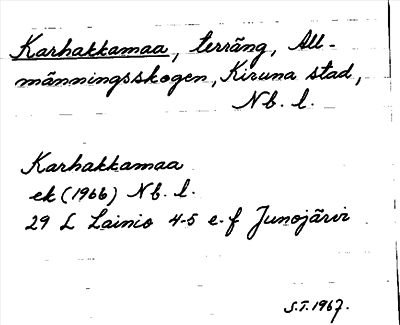 Karhakkamaa, terräng, All-
männingsskogen, Kiruna stad,
Nb. l.
Karhakkamaa
ek (1966) Nb. l.
29 L Lainio 4-5 e-f Junojärvi
S.T. 1967.